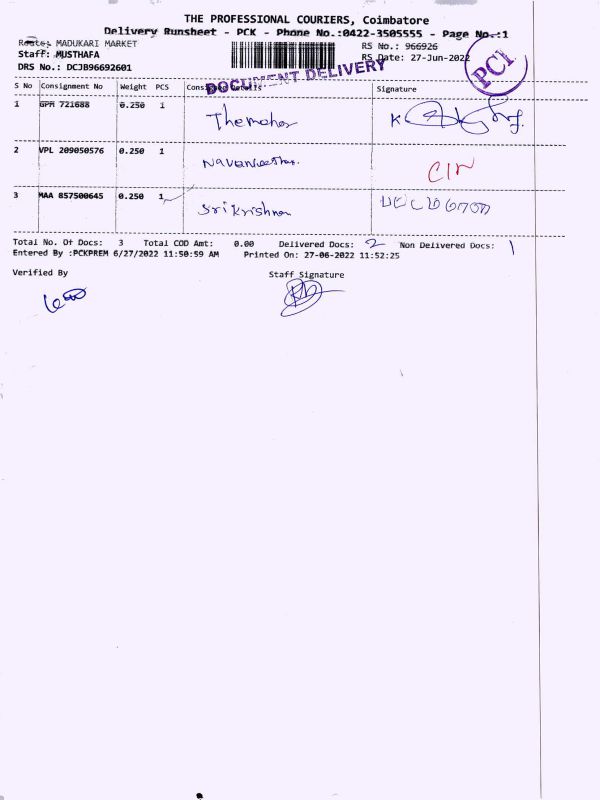 THE PROFESSIONAL COURIERS, Coimbatore
Delivery Runsheet - PCK - Phone No.:0422-3505555 - Page No.:1
Route: MADUKARI MARKET
RS No.: 966926
Staff: MUSTHAFA
RS Date: 27-Jun-2022
DRS No.: DCJB96692601
DOCUMENT DELIVERY
PCK
S No Consignment No Weight PCS Consignee Details Signature
1 GPM 721688 0.250 1
2 VPL 209050576 0.250 1 Navaneethan.
3 MAA 857500645 0.250 1 Sri Krishna
Total No. Of Docs: 3 Total COD Amt: 0.00 Delivered Docs: 2 Non Delivered Docs: 1
Entered By :PCKPREM 6/27/2022 11:50:59 AM Printed On: 27-06-2022 11:52:25
Verified By Staff Signature